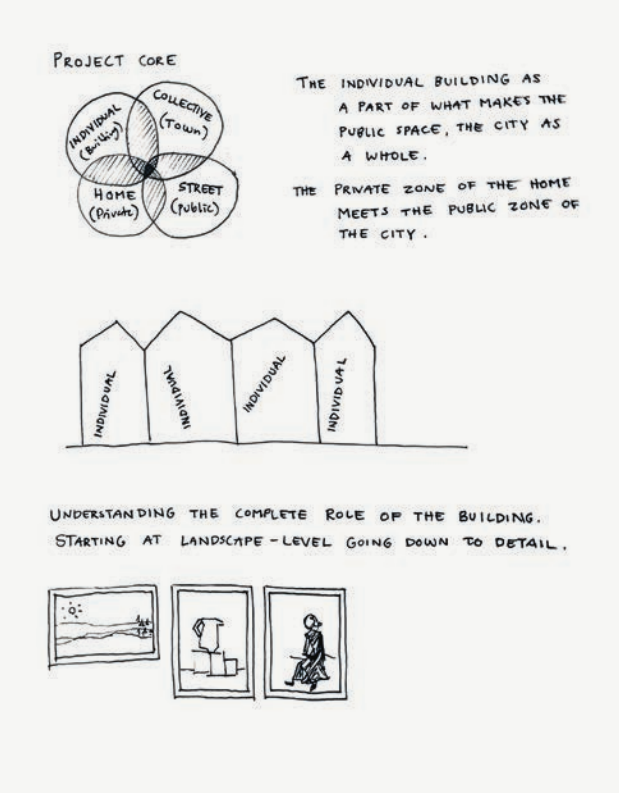 PROJECT CORE
INDIVIDUAL
(Building)
COLLECTIVE
(Town)
HOME
(Private)
STREET
(public)
THE INDIVIDUAL BUILDING AS
A PART OF WHAT MAKES THE
PUBLIC SPACE, THE CITY AS
A WHOLE.
THE PRIVATE ZONE OF THE HOME
MEETS THE PUBLIC ZONE OF
THE CITY.
INDIVIDUAL
INDIVIDUAL
INDIVIDUAL
INDIVIDUAL
UNDERSTANDING THE COMPLETE ROLE OF THE BUILDING.
STARTING AT LANDSCAPE-LEVEL GOING DOWN TO DETAIL.